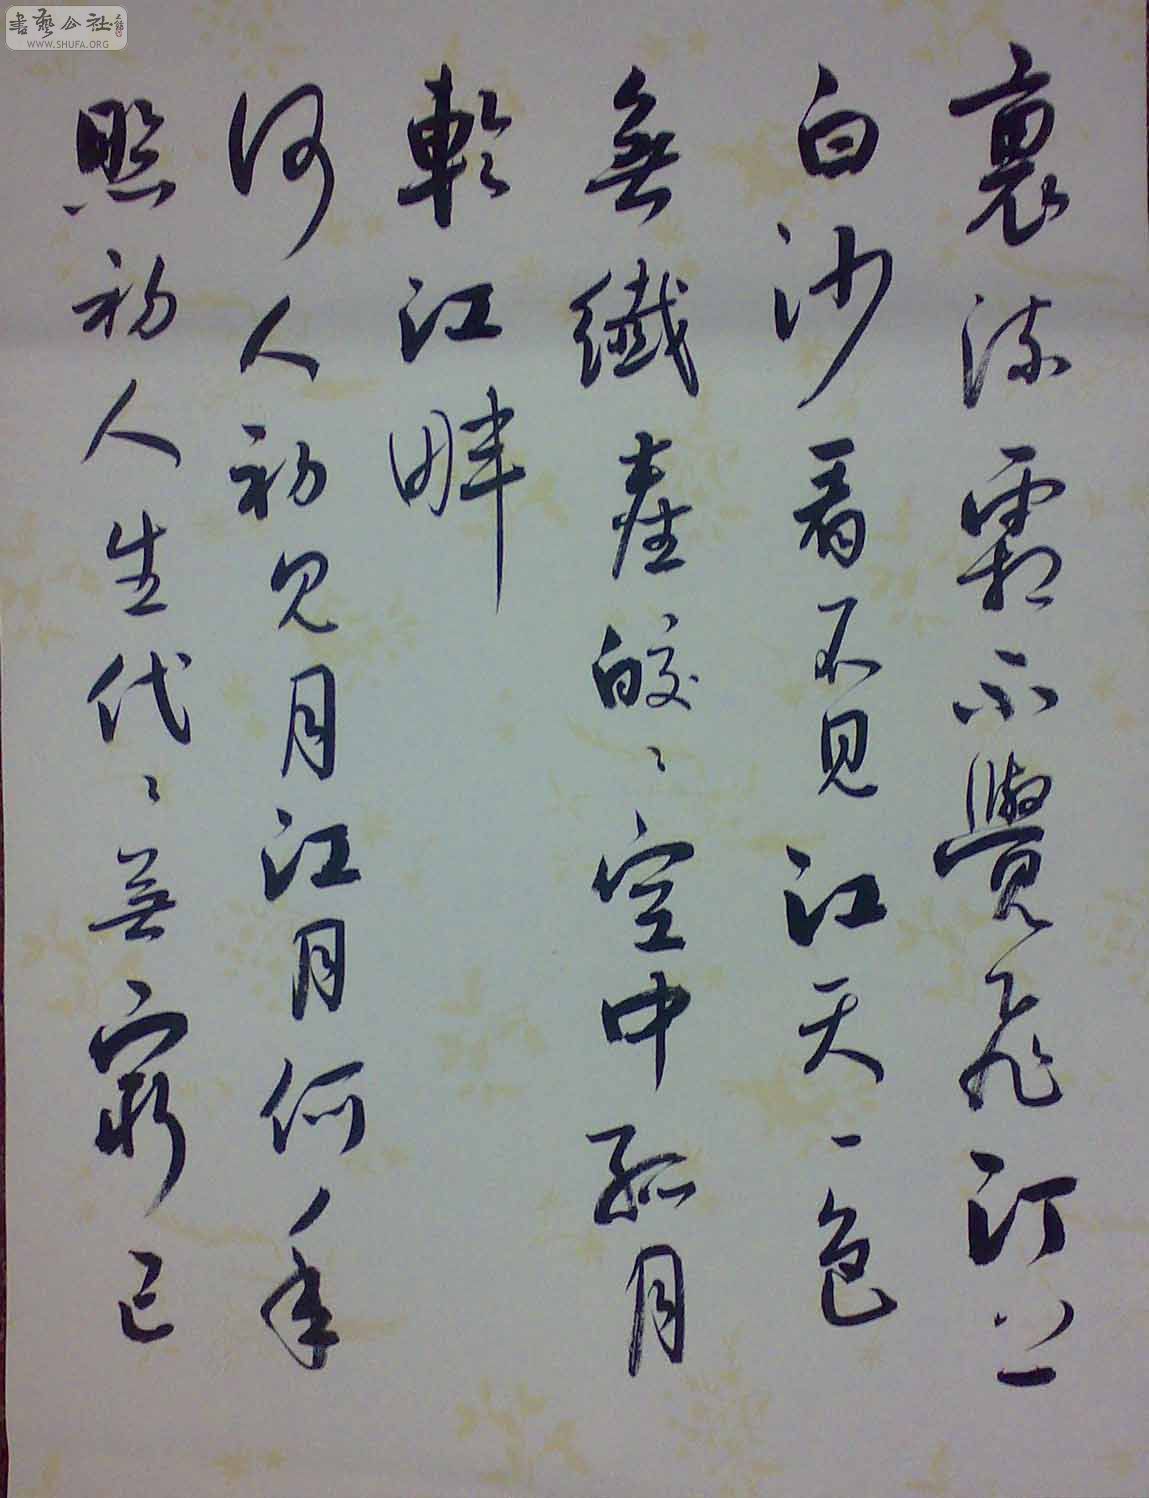 書藝公社
WWW.SHUFA.ORG
裏流霜不覺飛汀上
白沙看不見江天一色
無纖塵皎〻空中孤月
輪江畔
何人初見月江月何年
照初人生代〻無窮已